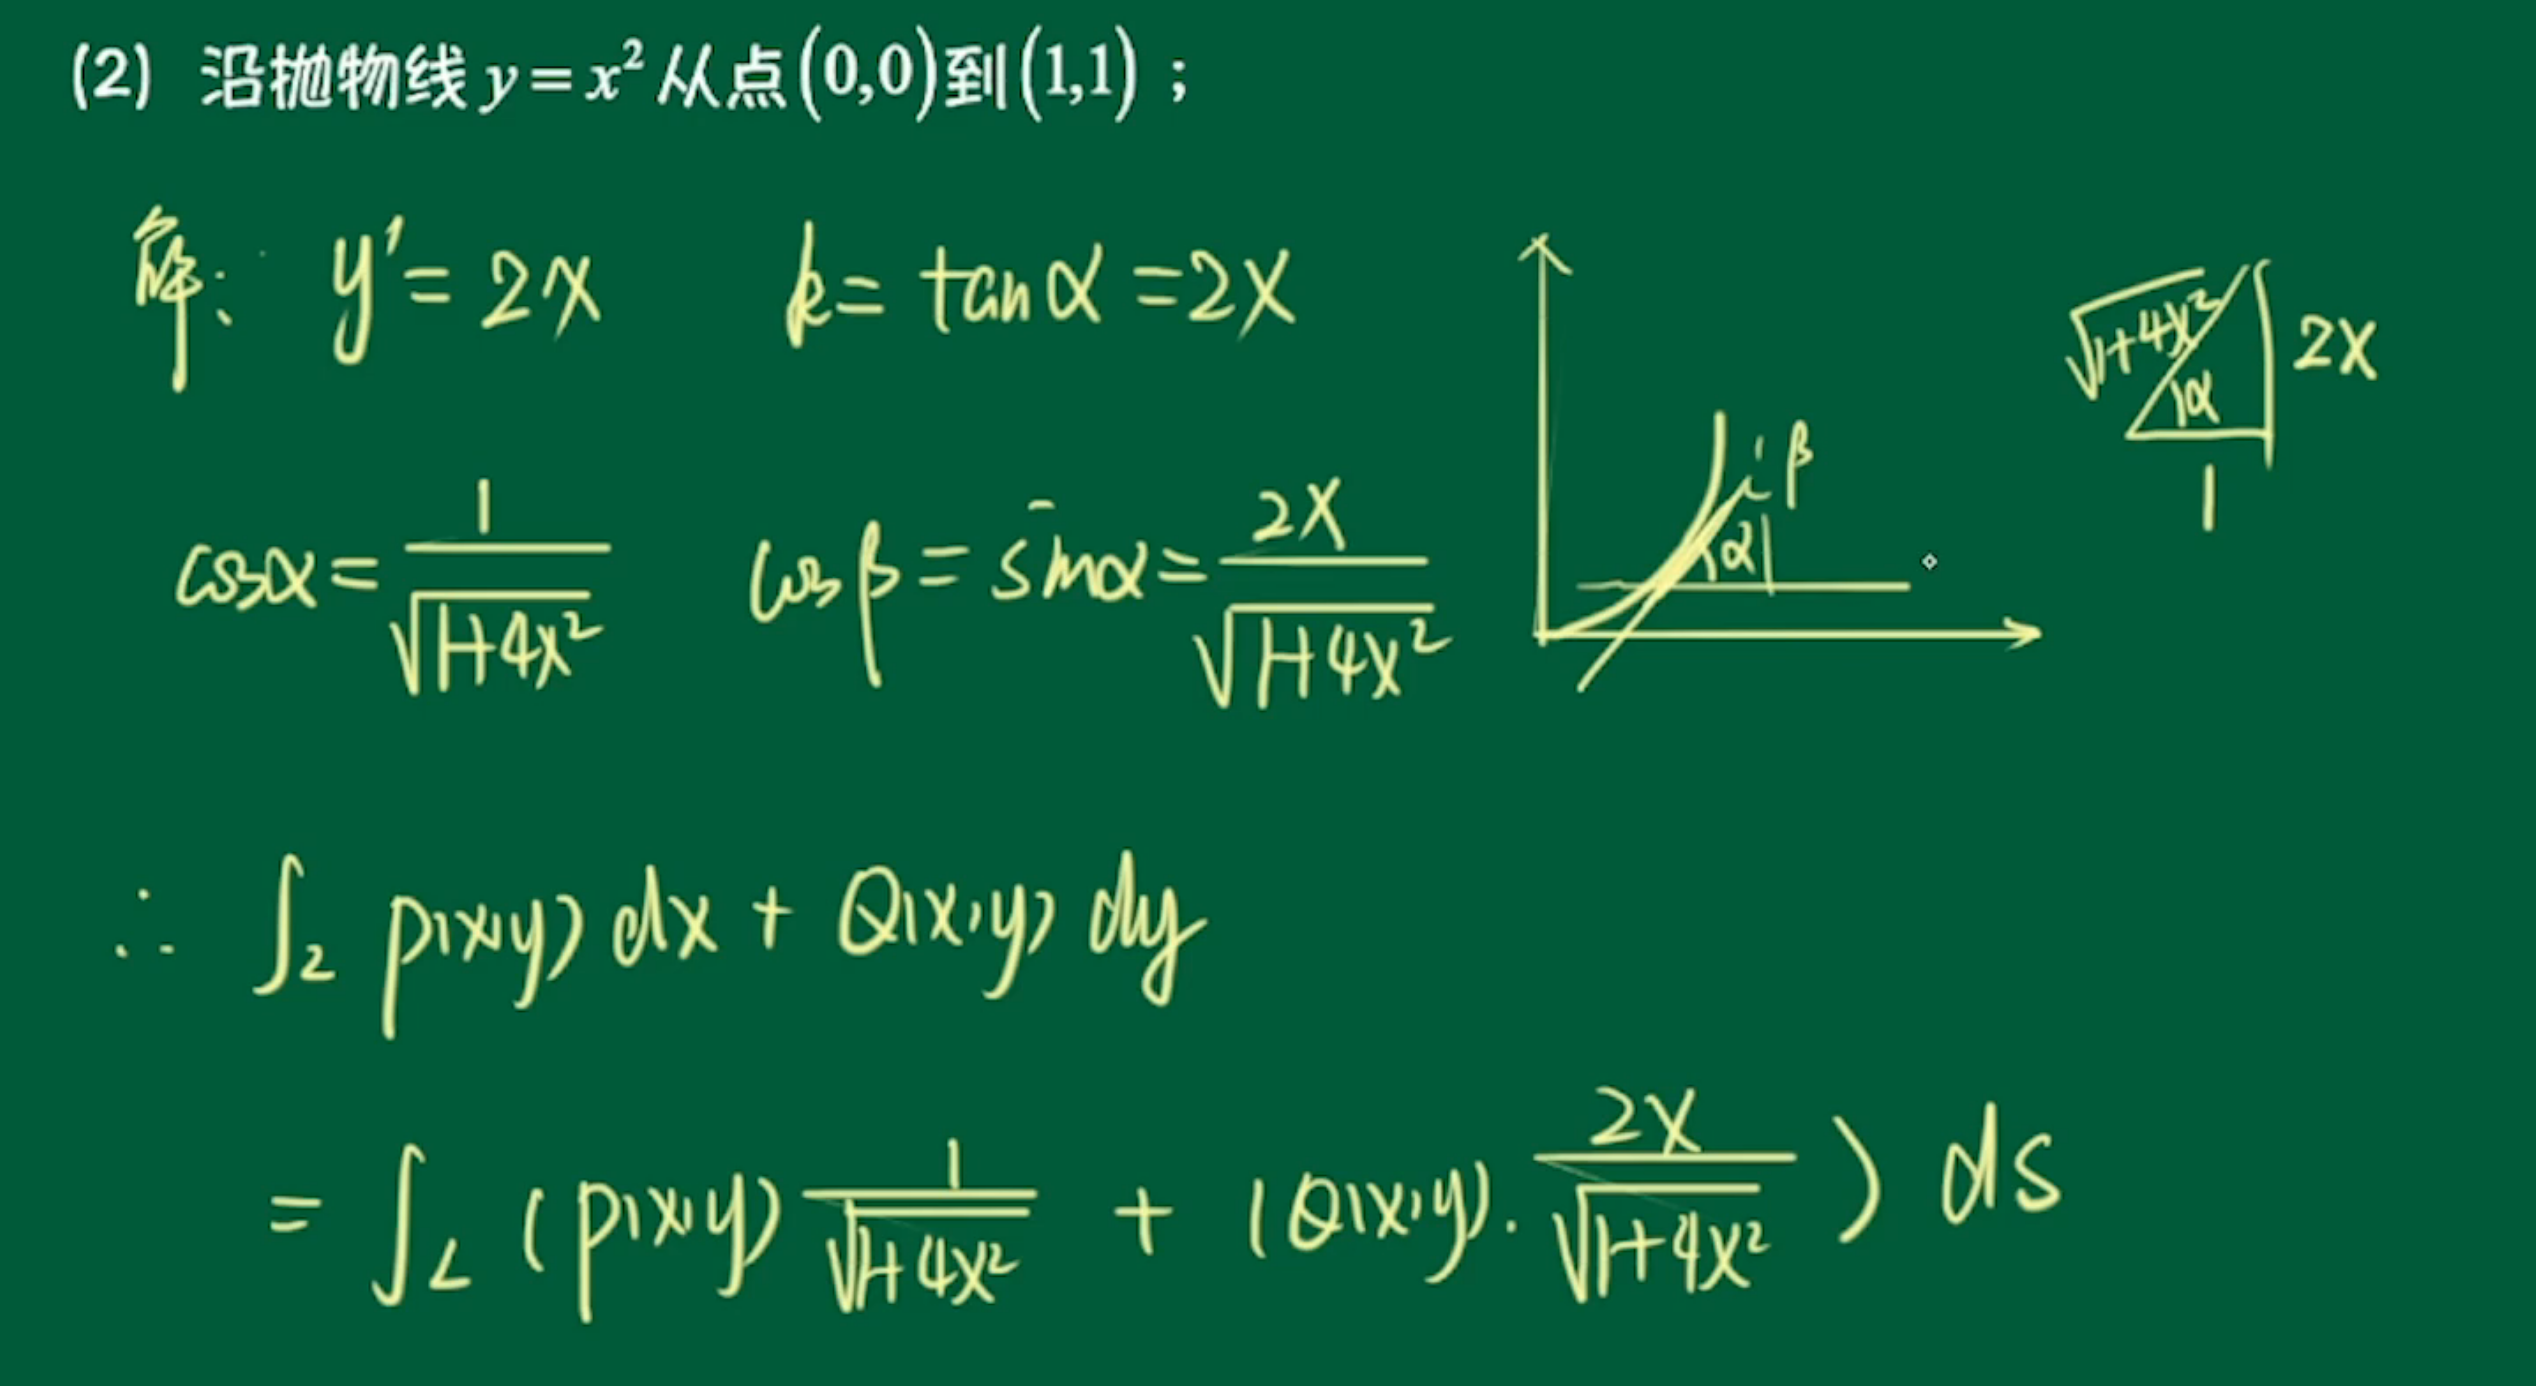 (2) 沿抛物线 y=x² 从点(0,0)到(1,1)；
解: y'=2x k=tanα=2x
√1+4x² α 2x 1
β α
cosα=1/√1+4x² cosβ=sinα=2x/√1+4x²
∴ ∫L P(x,y)dx+Q(x,y)dy
=∫L (P(x,y) 1/√1+4x² + (Q(x,y)·2x/√1+4x²) ds